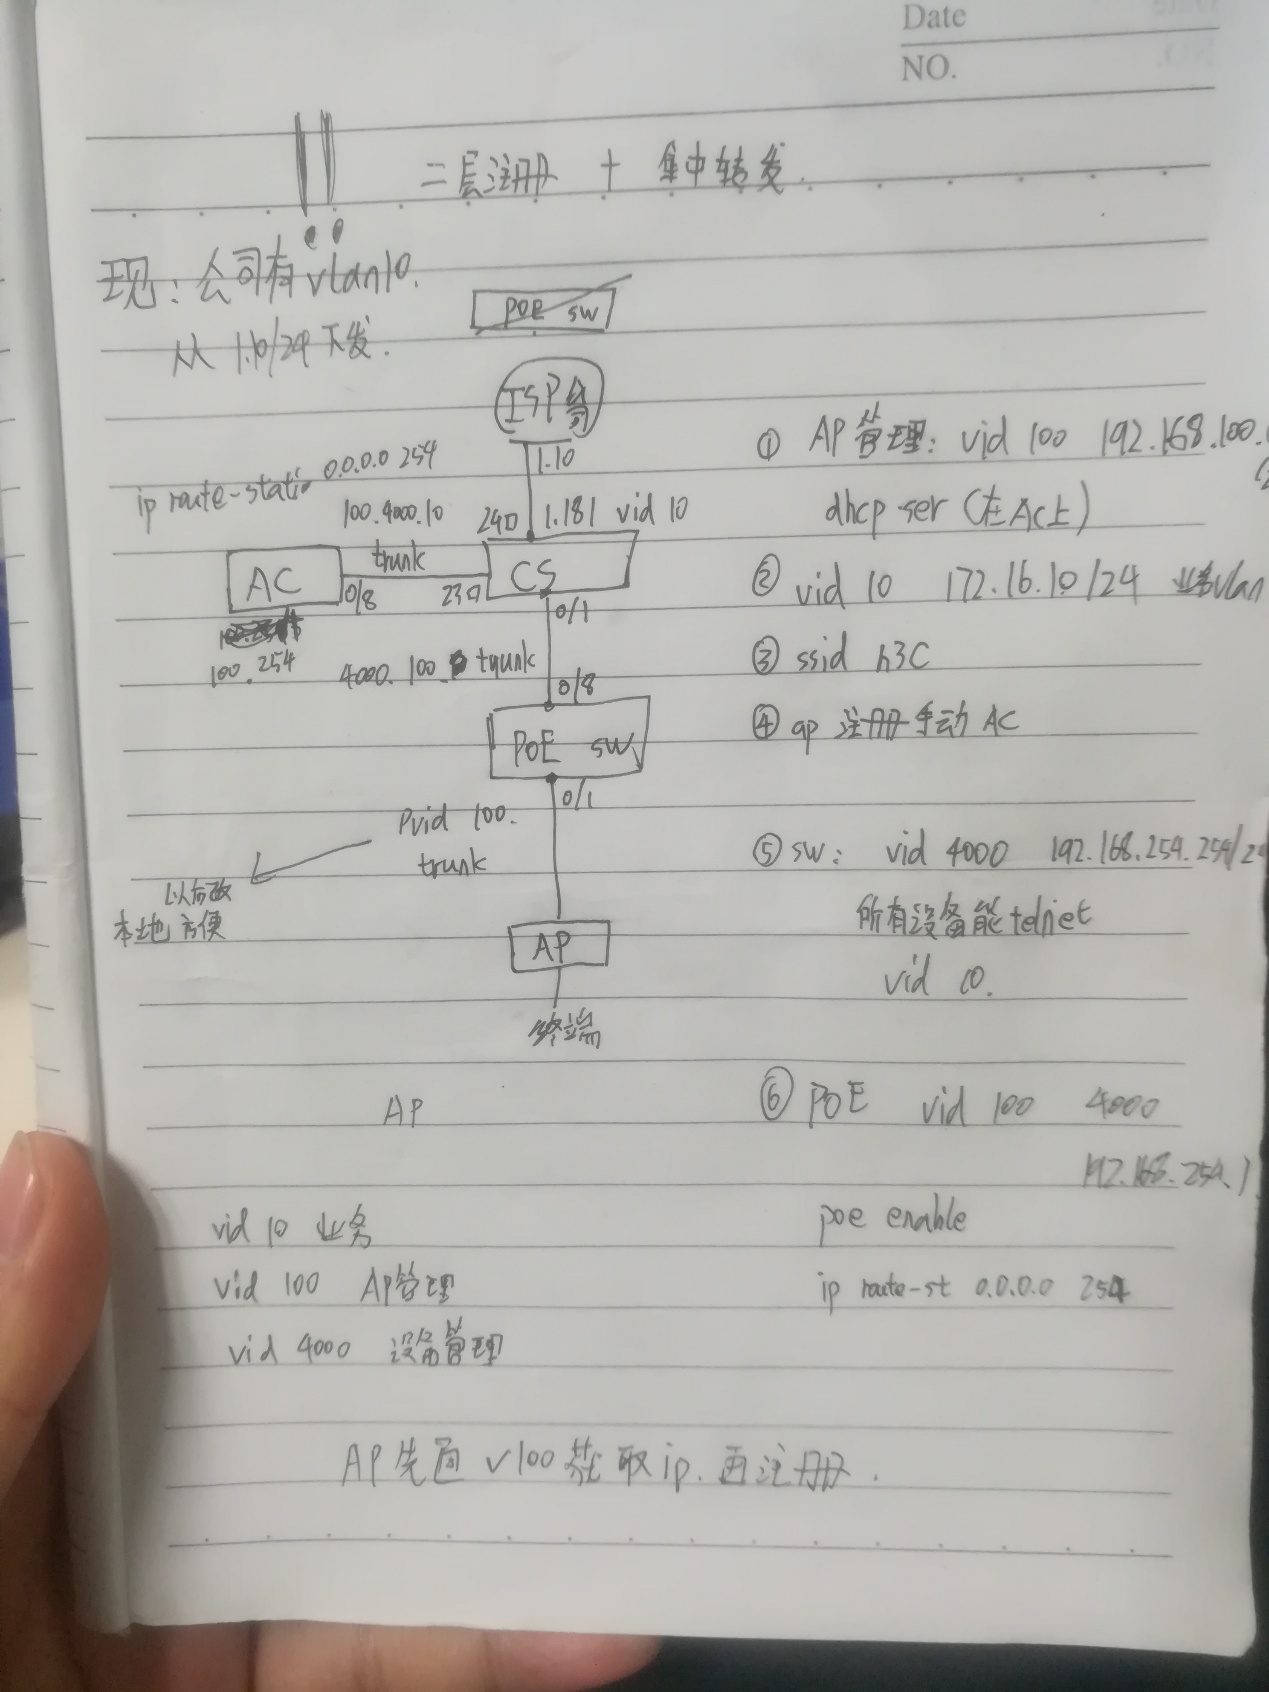 Date
NO.
二层注册 + 集中转发.
现: 公司有 vlan10.
从 1.10/24 下发.
POE SW
ISP
1.10
ip route-static 0.0.0.0 254
100.4000.10
trunk
24口 1.181 vid 10
AC
0/8
23口
CS
0/1
100.254
4000.100. trunk
0/8
POE SW
0/1
Pvid 100.
trunk
以后改
本地方便
AP
终端
① AP管理: vid 100 192.168.100.
dhcp ser (在Ac上)
② vid 10 172.16.10/24 业务vlan
③ ssid h3C
④ ap 注册手动 AC
⑤ sw: vid 4000 192.168.254.254/24
所有设备能telnet
vid 10.
⑥ POE vid 100 4000
192.168.254.1
poe enable
ip route-st 0.0.0.0 254
AP
vid 10 业务
vid 100 AP管理
vid 4000 设备管理
AP先通 v100 获取ip. 再注册.